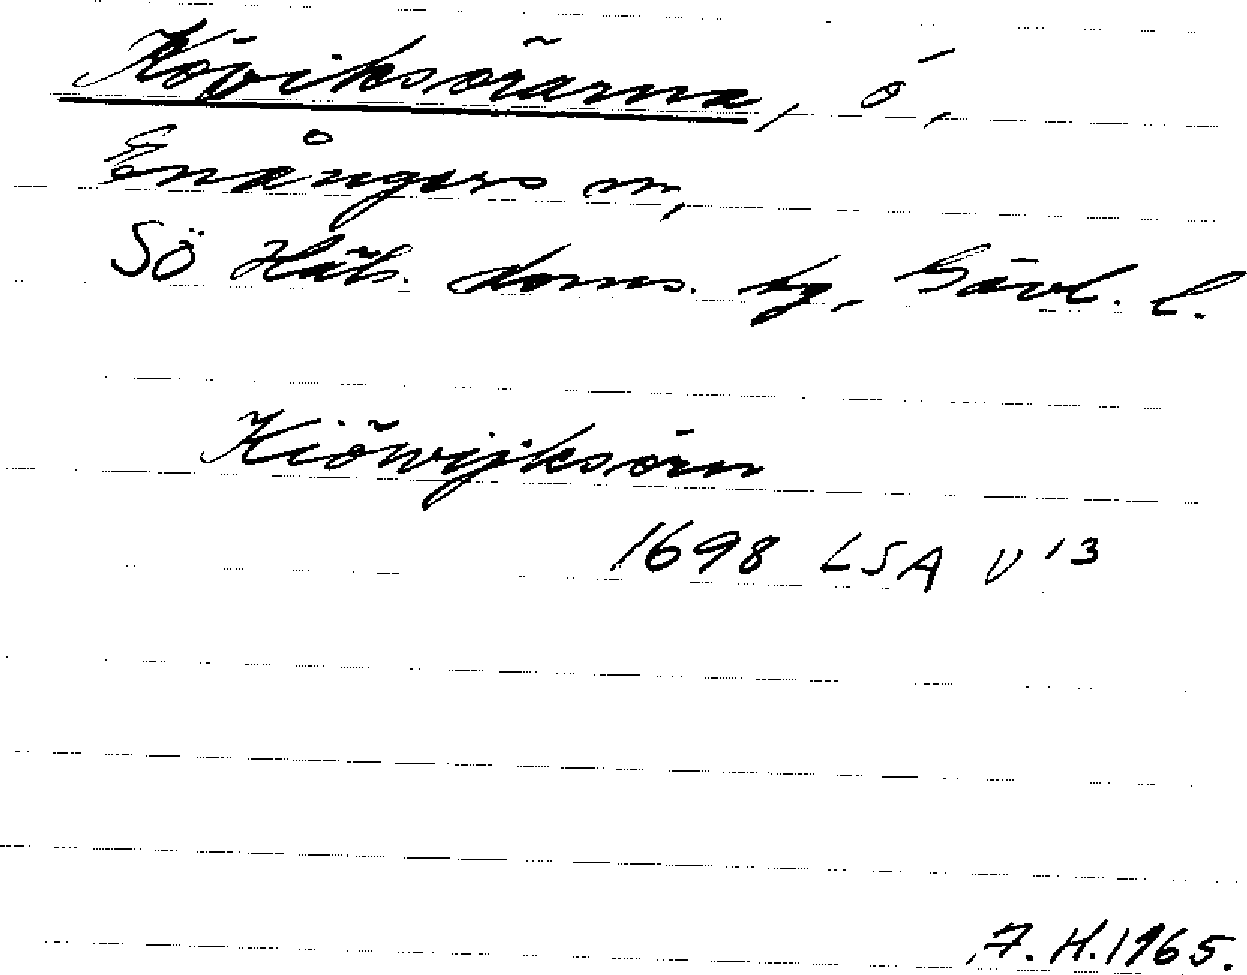 Köviksörarna, ö,
Enångers sn,
Sö Häls. doms. tg, Gävl. l.
Kiöwijksörn
1698 LSA V 13
F. H. 1965.